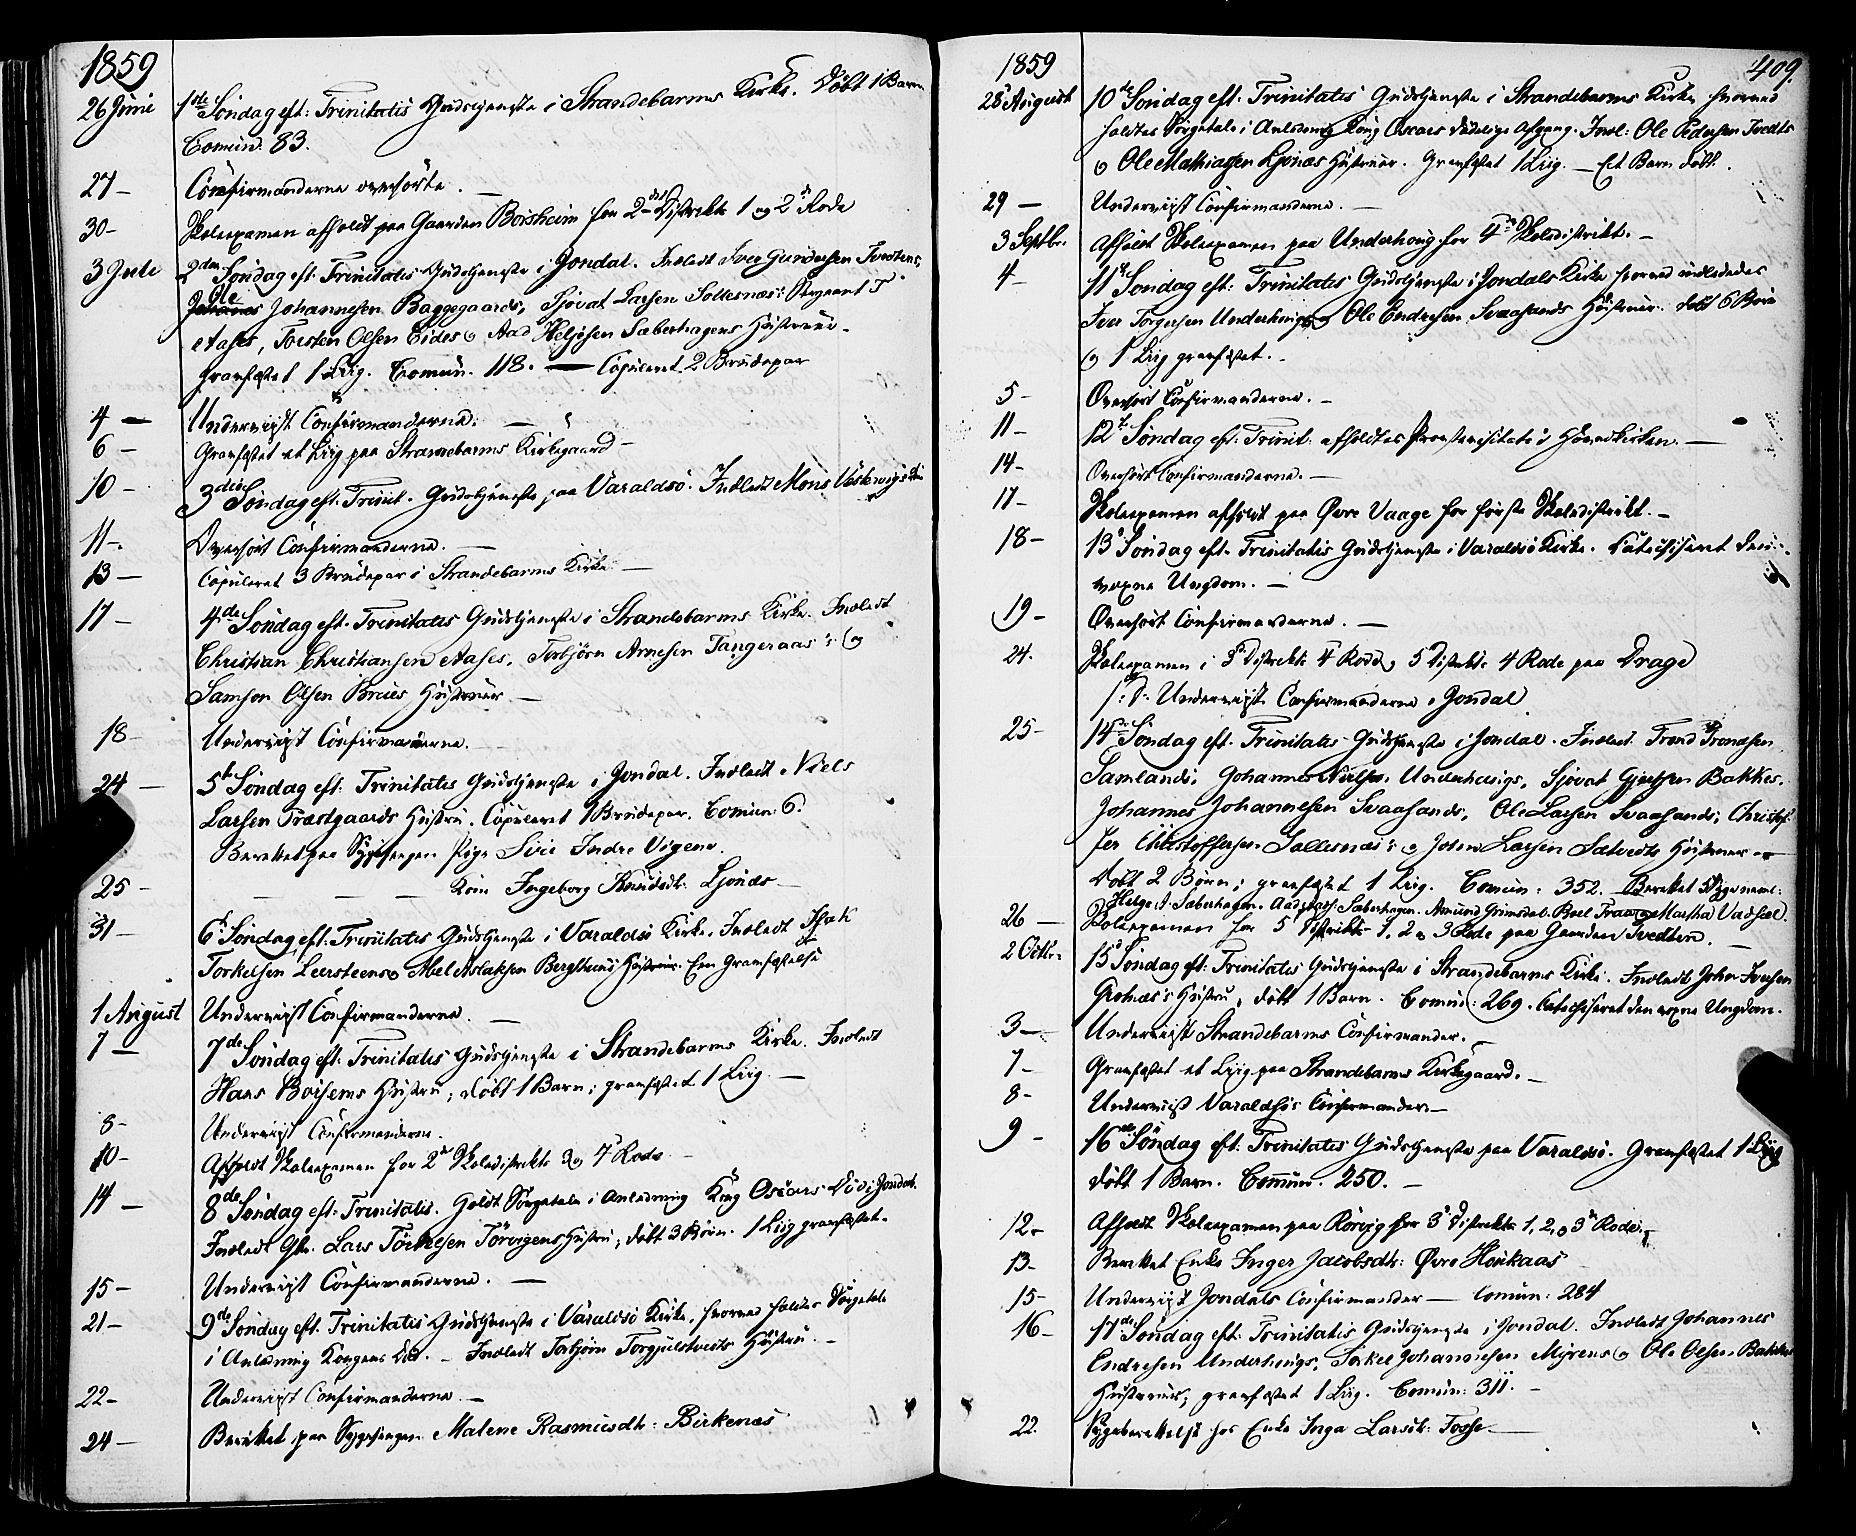 1859
26 Juni 1ste Søndag eft: Trinitatis Gudstjeneste i Strandebarms Kirke. Døbt 1 Barn
Comün. 83.
27 – Confirmanderne overhørte. —
30 – Skoleexamen afholdt paa Gaarden Børsheim for 2det Distrikts 1 og 2d Rode
3 Juli 2den Søndag eft: Trinitatis Gudstjeneste i Jondal. Indledt Iver Gundersen
Ole Johannesen Baggegaards, Sjovat Larsen Sollesnæs:
Aases, Torsten Olsen Eides og Aad Helgesen Sæberhagens Hustruer.
Gravfæstet 1 Liig. Comün. 118. — Copuleret 2 Brudepar
4 — Underviist Confirmanderne. —
6 – Gravfæstet et Liig paa Strandebarms Kirkegaard –
10 – 3die Søndag eft: Trinit. Gudstjeneste paa Varaldsö. Indledt Mons
11 –. Overhørt Confirmanderne. —
13 – Copuleret 3 Brudepar i Strandebarms Kirke —
17 4de Søndag eft: Trinitatis Gudstjeneste i Strandebarms Kirke. Indledt
Christian Christiansen Aases, Torbjörn Arnesen Tangeraas's og
Samson Olsen Hustruer —
18 – Underviist Confirmanderne. —
24 — 5te Søndag eft: Trinitatis Gudstjeneste i Jondal. Indledt Niels
Larsen Træstgaards Hustru. Copuleret 1 Brudepar. Comün: 6.
Berettet paa Sygesengen Pige Siri Indre Vigene.
25 – — — — Kone Ingeborg Knudsdt: Ljonæs —
31 – 6te Søndag eft: Trinitatis Gudstjeneste i Varaldsö Kirke. Indledt Isak
Torkelsen Leersteens og Abel Aslaksen Bergsheims Hustruer. Een Gravfæstelse
1 August Underviist Confirmanderne. —
7 — 7de Søndag eft: Trinitatis Gudstjeneste i Strandebarms Kirke. Indledt
Hans Hustru; døbt 1 Barn; gravfæstet 1 Liig. —
8 – Underviist Confirmanderne.
10 – Afholdt Skoleexamen for 2det Skoledistrikts 3 og 4d Rode —
14 – 8de Søndag eft: Trinitatis. Holdt Sørgetale i Anledning Kong Oscars Død i Jondal.
Indledt Lars Hustru; døbt 3 Børn. 1 Liig gravfæstet.
15 – Underviist Confirmanderne. —
21 – 9de Søndag eft: Trinitatis Gudstjeneste i Varaldsö Kirke, hvorved holdtes Sørgetale
i Anledning Kongens Død. – Indledt Torbjörn Torgjulstvedts Hustru. –
22 – Underviist Confirmanderne. —
24 – Berettet paa Sygesengen Malene Rasmusdt: Birkenæs
1859 409.
28 August 10de Søndag eft: Trinitatis Gudstjeneste i Strandebarms Kirke hvorved
holdtes Sørgetale i Anledning Kong Oscars dødelige Afgang. Indl: Ole Pedersen Tvedts
og Ole Mathiassen Ljonæs Hustruer. Gravfæstet 1 Liig. — Et Barn døbt.
29 — Underviist Confirmanderne. —
3 Septbr. Afholdt Skoleexamen paa Underhoug for 4de Skoledistrikt. –
4 – 11te Søndag eft: Trinitatis Gudstjeneste i Jondals Kirke hvorved indlededes
Iver Torgersen Underhougs og Ole Endresen Svaasands Hustruer. døbt 6 Børn
og 1 Liig gravfæstet. –
5 – Overhørt Confirmanderne. –
11 – 12te Søndag eft: Trinit: afholdtes Provstevisitats i Hovedkirken. —
14 – Overhørt Confirmanderne. –
17 – Skoleexamen afholdt paa Øvre Vaage for første Skoledistrikt. –
18 – 13de Søndag eft: Trinitatis Gudstjeneste i Varaldsö Kirke. Catechiseret den
voxne Ungdom. —
19 – Overhørt Confirmanderne. —
24. Skoleexamen i 3de Distrikts 4 Rode og 5 Distrikts 4 Rode paa Drage
s: D: Underviist Confirmanderne i Jondal.
25 – 14de Søndag eft: Trinitatis Gudstjeneste i Jondal. Indledt Trond Trondsen
Samlands, Johannes Nielsen Underhougs, Sjovat Bakkes,
Johannes Johannesen Svaasands, Ole Larsen Svaasands, Christof-
fer Christoffersen Sollesnæs's og John Larsen Sætvedts Hustruer —
døbt 2 Børn; gravfæstet 1 Liig. Comün: 352. Berettet 5 Syge neml:
Helge Sæberhagen. Aad Sæberhagen. Amund Grimsdal. Roel Traa og Martha Vadsel.
26 — Skoleexamen for 5 Distrikts 1, 2 og 3 Rode paa Gaarden Tvedten. —
2 Octbr. 15de Søndag eft: Trinitatis Gudstjeneste i Strandebarms Kirke. Indledt John Iversen
Hustru; døbt 1 Barn. Comün: 269. Catechiseret den voxne Ungdom.
3 — Underviist Strandebarms Confirmander. –
7 – Gravfæstet et Liig paa Strandebarms Kirkegaard. –
8 – Underviist Varaldsös Confirmander –
9 – 16de Søndag eft: Trinitatis Gudstjeneste paa Varaldsö. Gravfæstet 1 Liig
døbt 1 Barn. Comün. 250. –
12 – Afholdt Skoleexamen paa Rørvig for 3de Distrikts 1, 2, og 3de Rode. –
13 – Berettet Enke Inger Jacobsdtr: Øvre Haukaas
15 – Underviist Jondals Confirmander — Comün: 284
16 – 17de Søndag eft: Trinitatis Gudstjeneste i Jondal. Indledt Johannes
Endresen Underhougs, Torkel Johannesen Myrens og Ole Olsen Bakkes
Hustruer; gravfæstet 1 Liig. Comün: 311. –
22. Sygeberettelse hos Enke Inga Larsdt: Fosse —